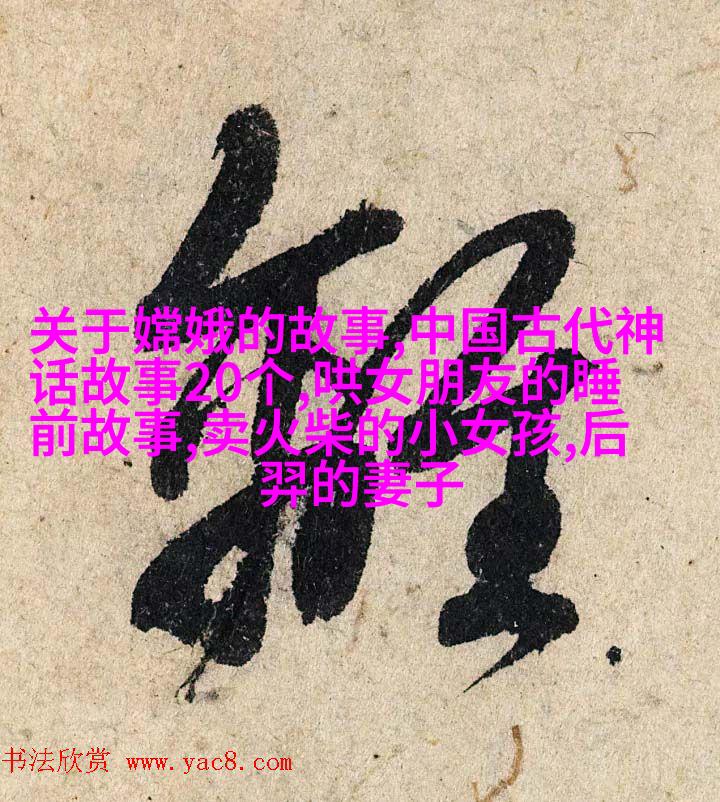 关于嫦娥的故事,中国古代神
话故事20个,哄女朋友的睡
前故事,卖火柴的小女孩,后
羿的妻子
书法欣赏 www.yac8.com